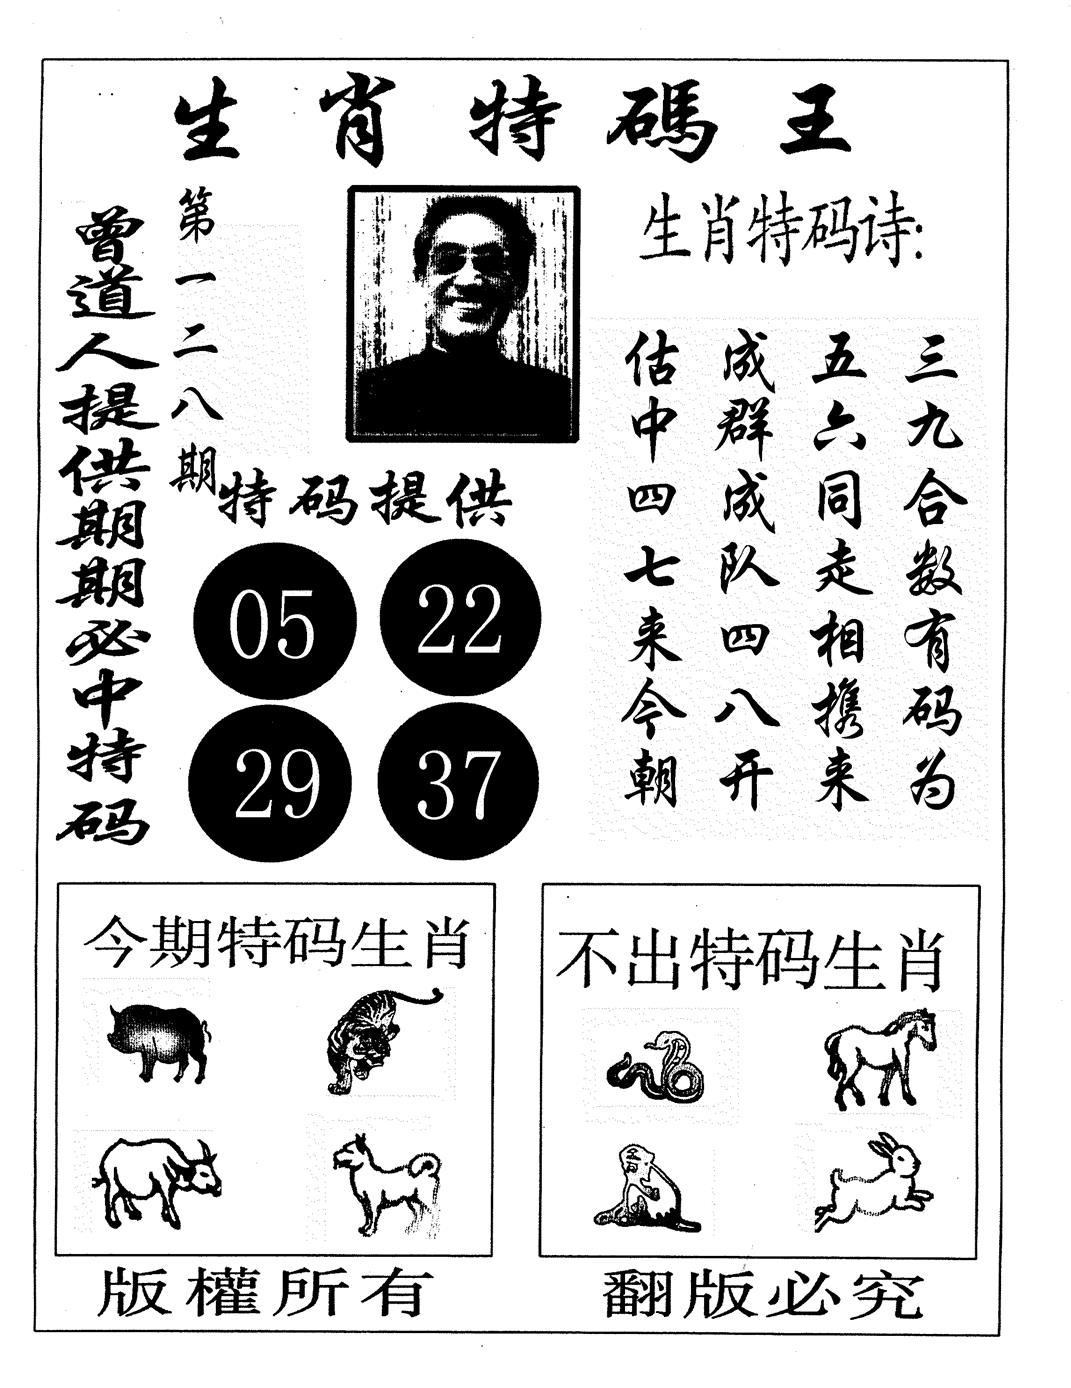 生肖特碼王
曾道人提供期期必中特码
第一二八期
生肖特码诗:
三九合数有码为
五六同走相携来
成群成队四八开
估中四七来今朝
特码提供
05 22
29 37
今期特码生肖
不出特码生肖
版權所有
翻版必究